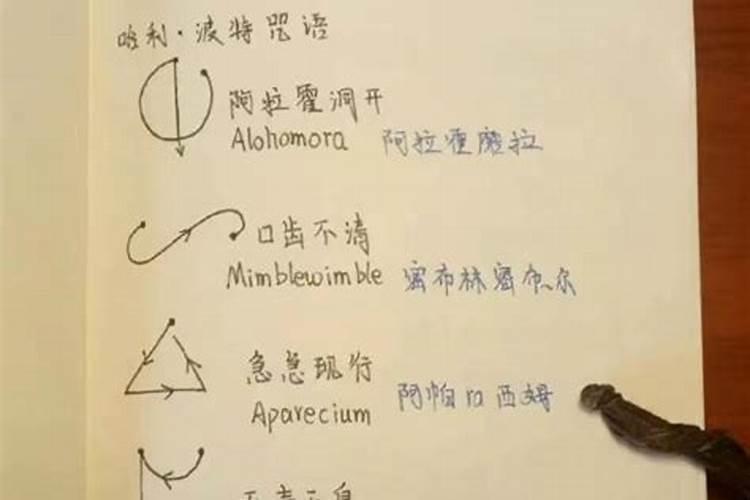 哈利·波特咒语
阿拉霍洞开
Alohomora 阿拉霍魔拉
口齿不清
Mimblewimble 密布林密布尔
急急现行
Aparecium 阿帕ra西姆